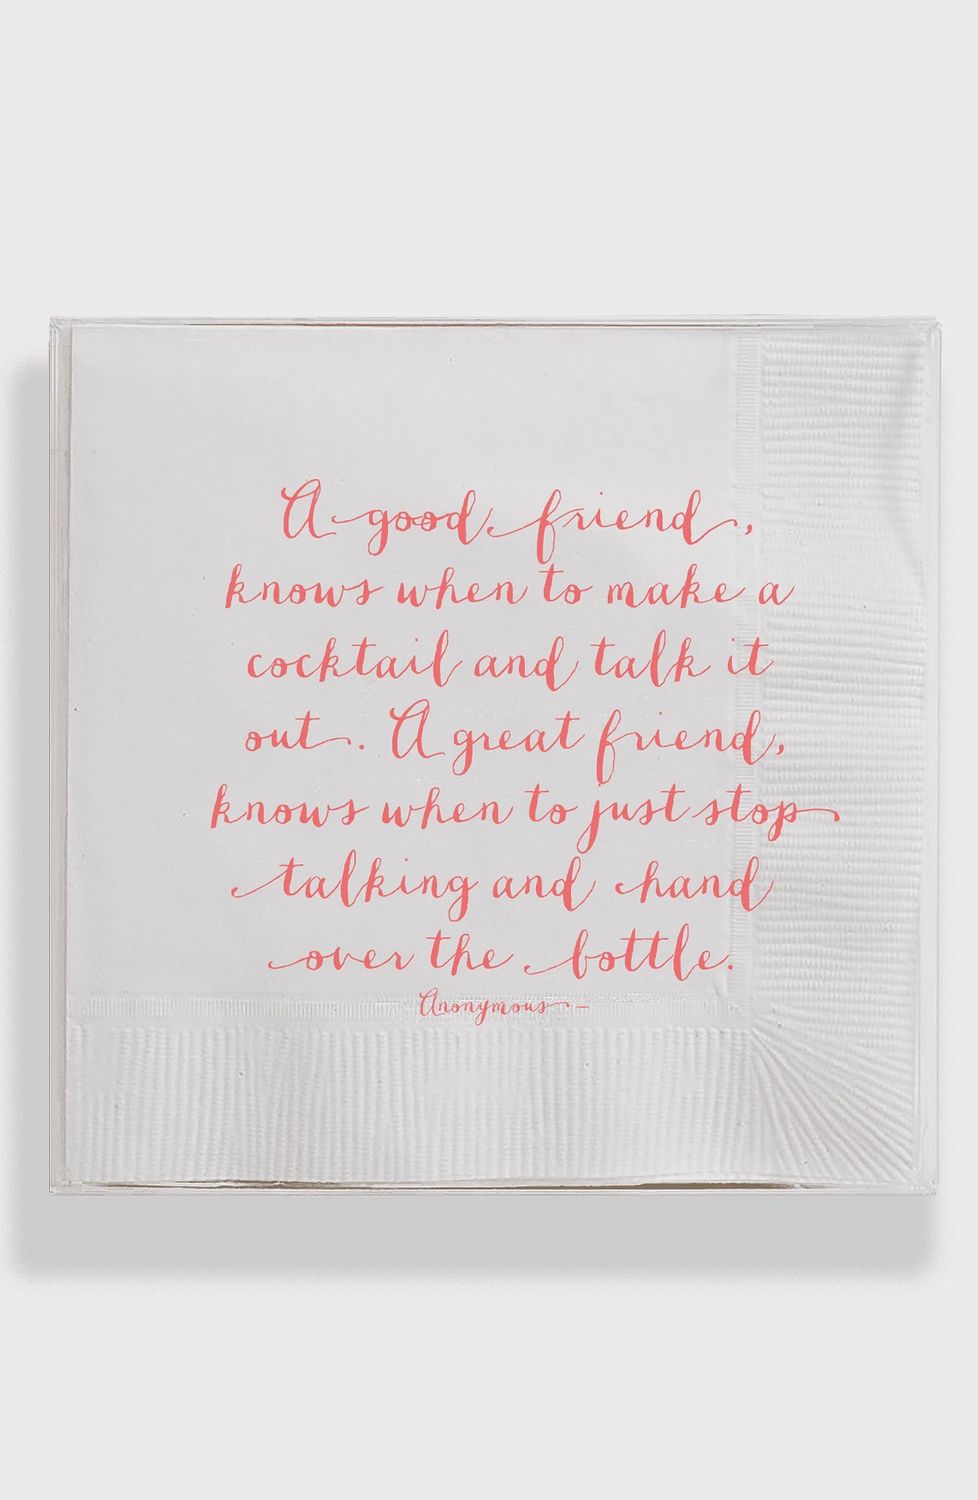 A good friend,
knows when to make a
cocktail and talk it
out. A great friend,
knows when to just stop
talking and hand
over the bottle.
Anonymous -